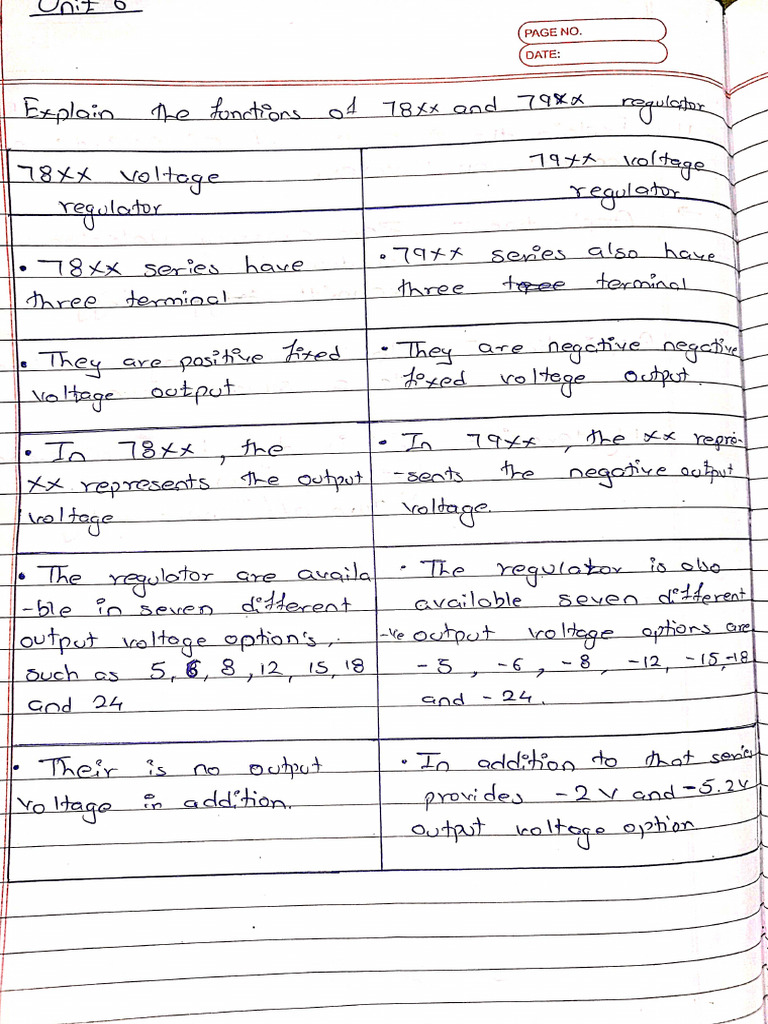 Unit 6
PAGE NO.
DATE:
Explain the functions of 78xx and 79xx regulator
78xx voltage
regulator
• 78xx series have
three terminal
• They are positive fixed
voltage output
• In 78xx, the
xx represents the output
voltage
• The regulator are availa
-ble in seven different
output voltage option's,
such as 5, 6, 8, 12, 15, 18
and 24
• Their is no output
voltage in addition.
79xx voltage
regulator
• 79xx series also have
three terminal
• They are negative negative
fixed voltege output.
• In 79xx, the xx repre-
-sents the negative output
voltage.
• The regulator is also
available seven different
-ve output voltage options are
-5, -6, -8, -12, -15, -18
and -24.
• In addition to that series
provides -2v and -5.2v
output voltage option